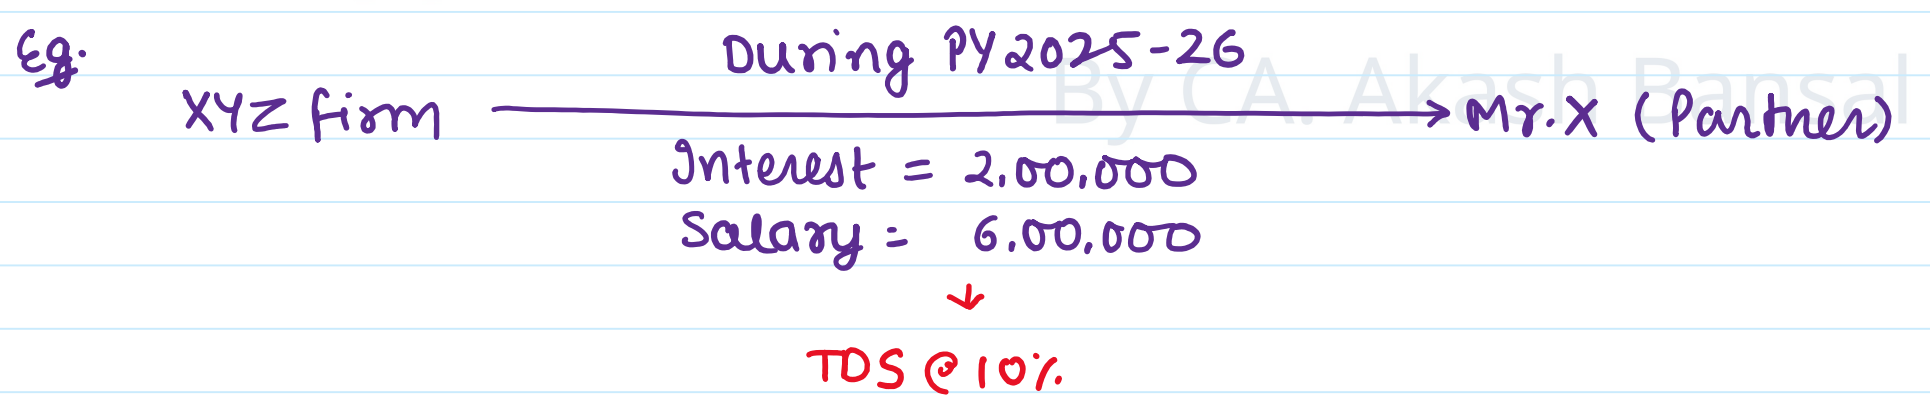 Eg.
During PY 2025-26
By CA. Akash Bansal
XYZ firm → Mr. X (Partner)
Interest = 2,00,000
Salary = 6,00,000
↓
TDS @ 10%